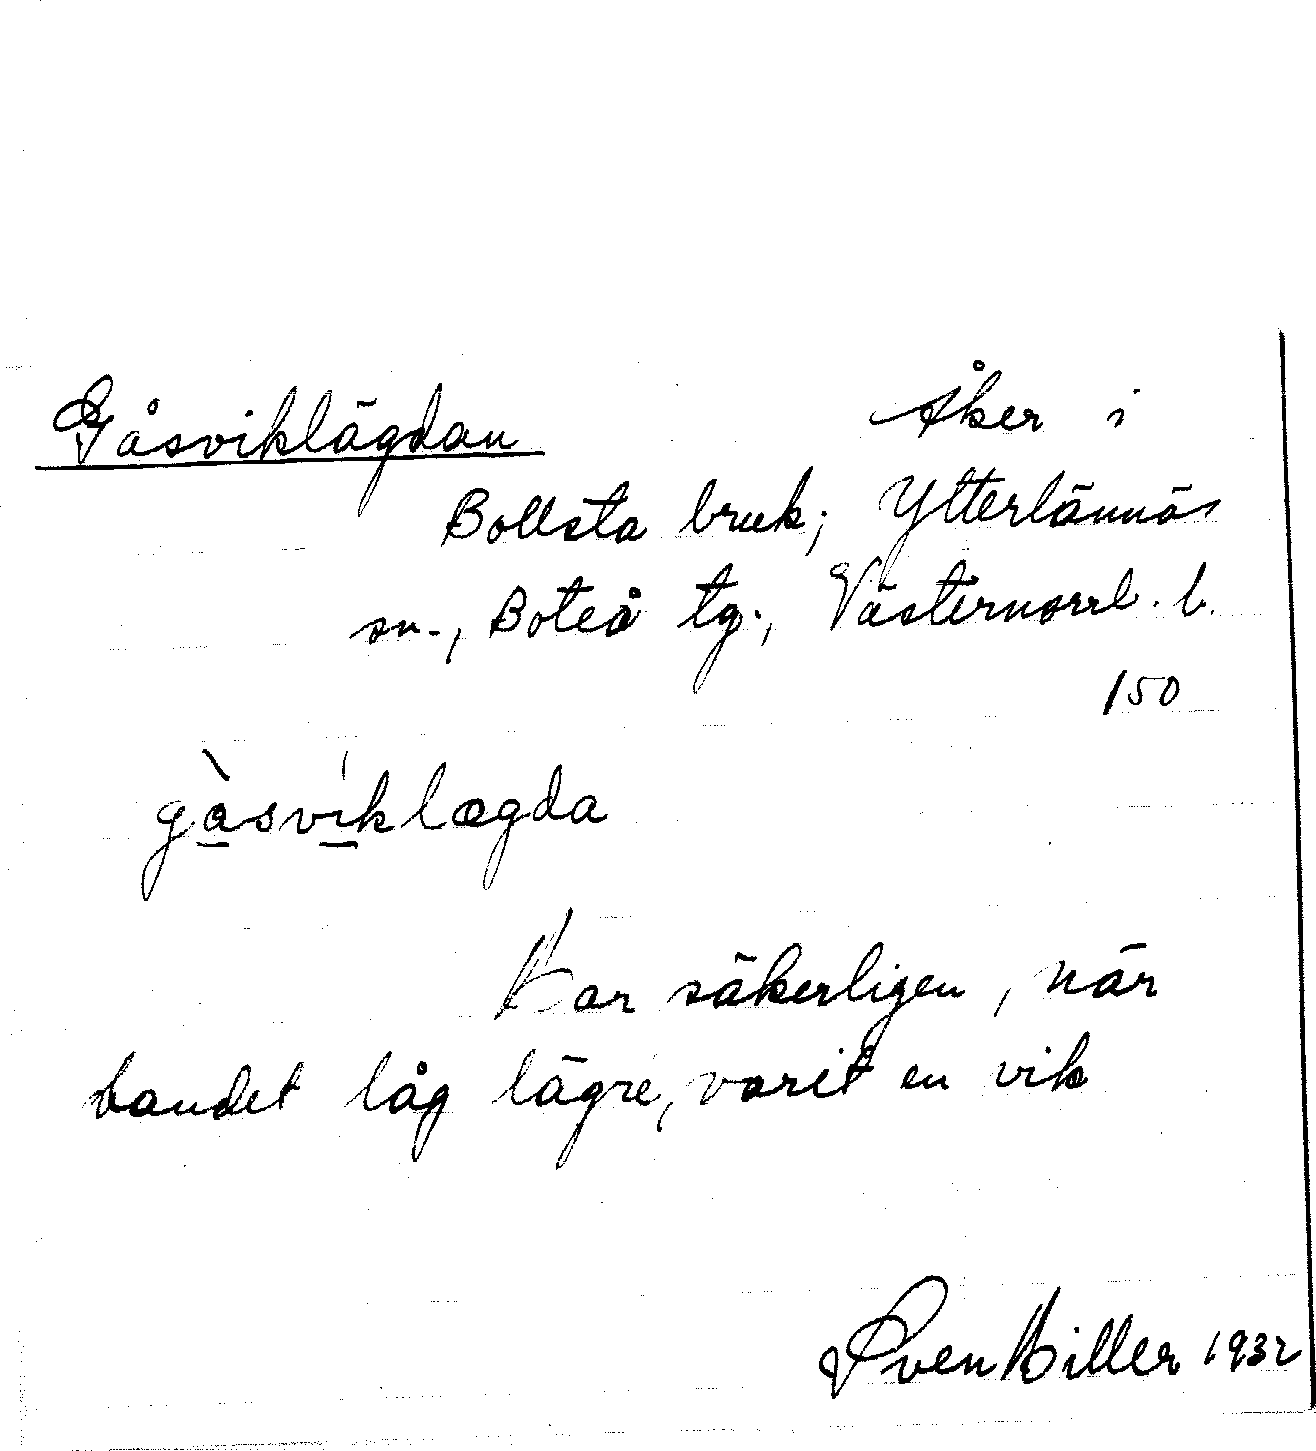 Gåsviklägdan Åker i
Bollsta bruk; Ytterlännäs
sn., Boteå tg., Västernorrl. l.
150
gàsvíklægda
Har säkerligen, när
landet låg lägre, varit en vik
Sven Hiller 1932